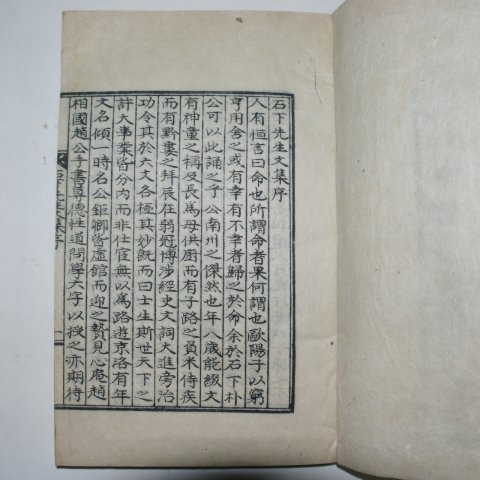 石下先生文集序
人有恒言曰命也所謂命者果何謂也歐陽子以窮
亨用舍之或有幸有不幸者歸之於命余於石下朴
公可以此誦之乎公南州之傑然也年八歲能綴文
有神童之稱及長爲母供廚而有子路之負米侍疾
而有黔婁之拜辰在弱冠博涉經史文詞大進旁治
功令其於六文各極其妙旣而曰士生斯世天下之
許大事業皆分內而非仕宦無以爲路遊京洛有年
文名傾一時名公鉅卿皆虛館而迎之贄見心庵趙
相國趙公手書尊德性道問學大字以授之亦期待
石下先生文集序
一